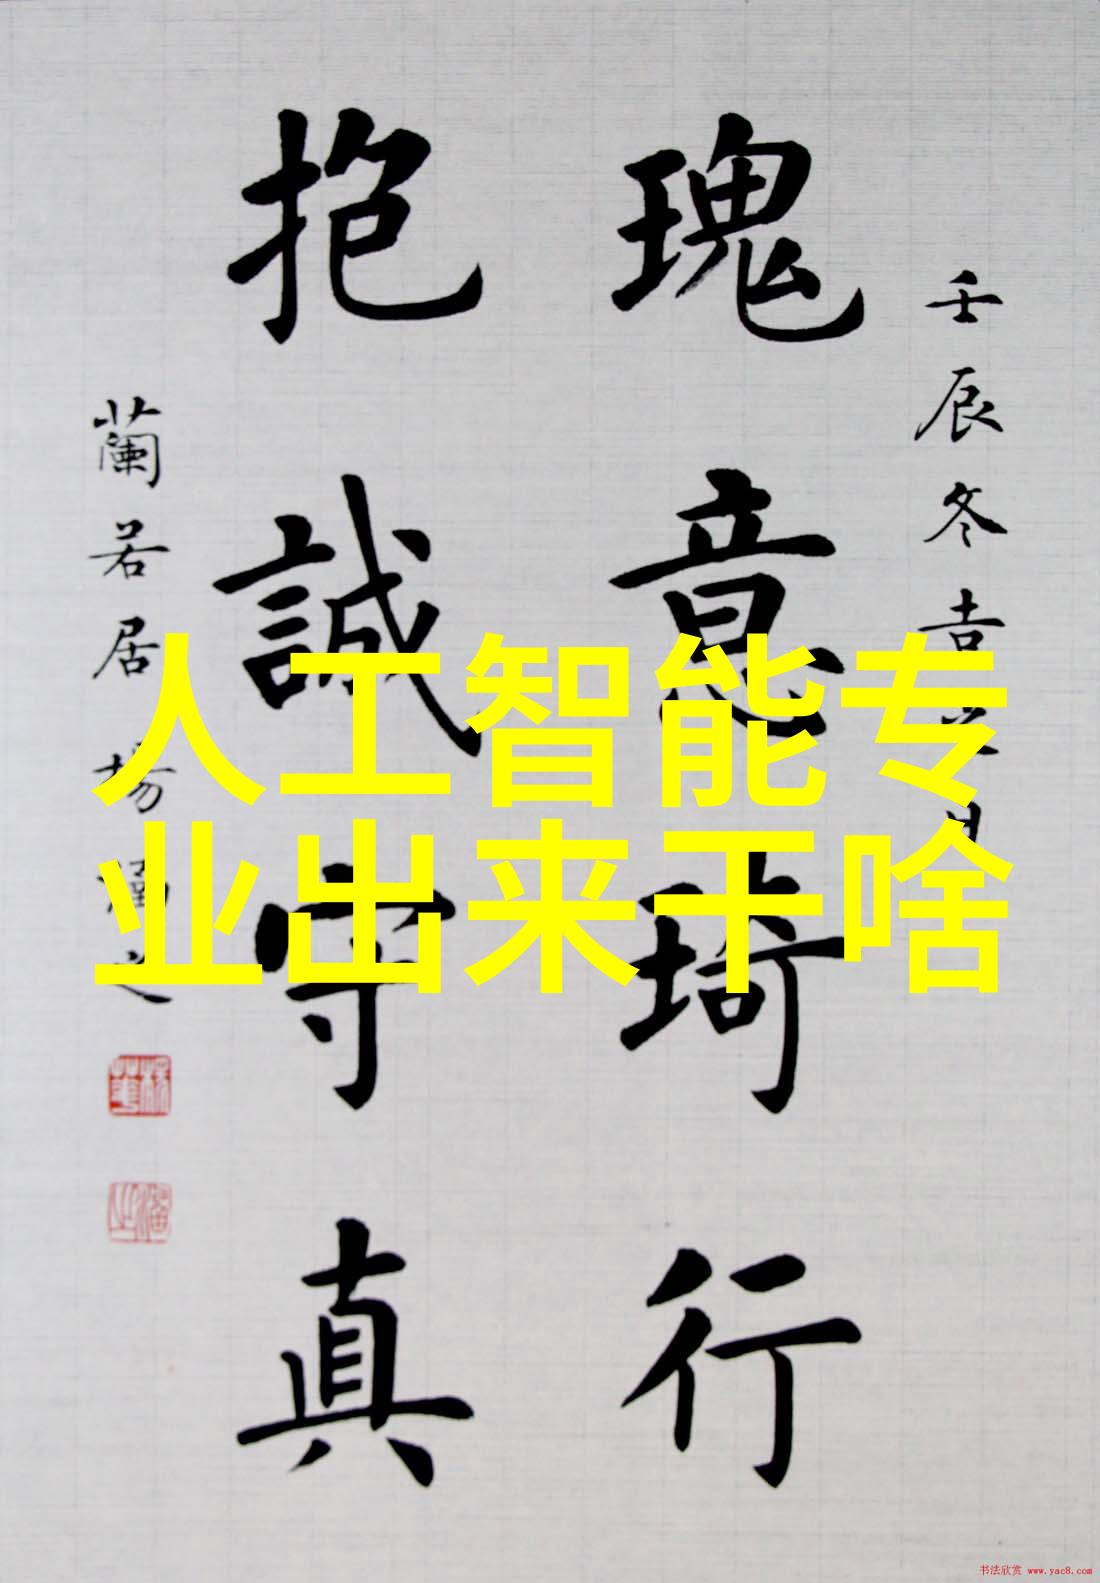 壬辰冬吉
瑰意琦行
抱誠守真
蘭若居楊
人工智能专
业出来干啥
书法欣赏 www.yac8.com